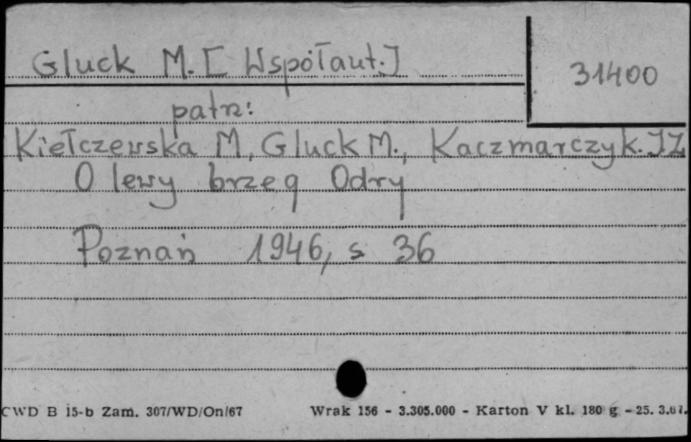 Gluck M. [Współaut.]
31400
patrz:
Kiełczewska M, Gluck M., Kaczmarczyk. JZ
O lewy brzeg Odry
Poznań 1946, s 36
CWD B 15-b Zam. 307/WD/On/67 Wrak 156 - 3.305.000 - Karton V kl. 180 g - 25. 3.67.